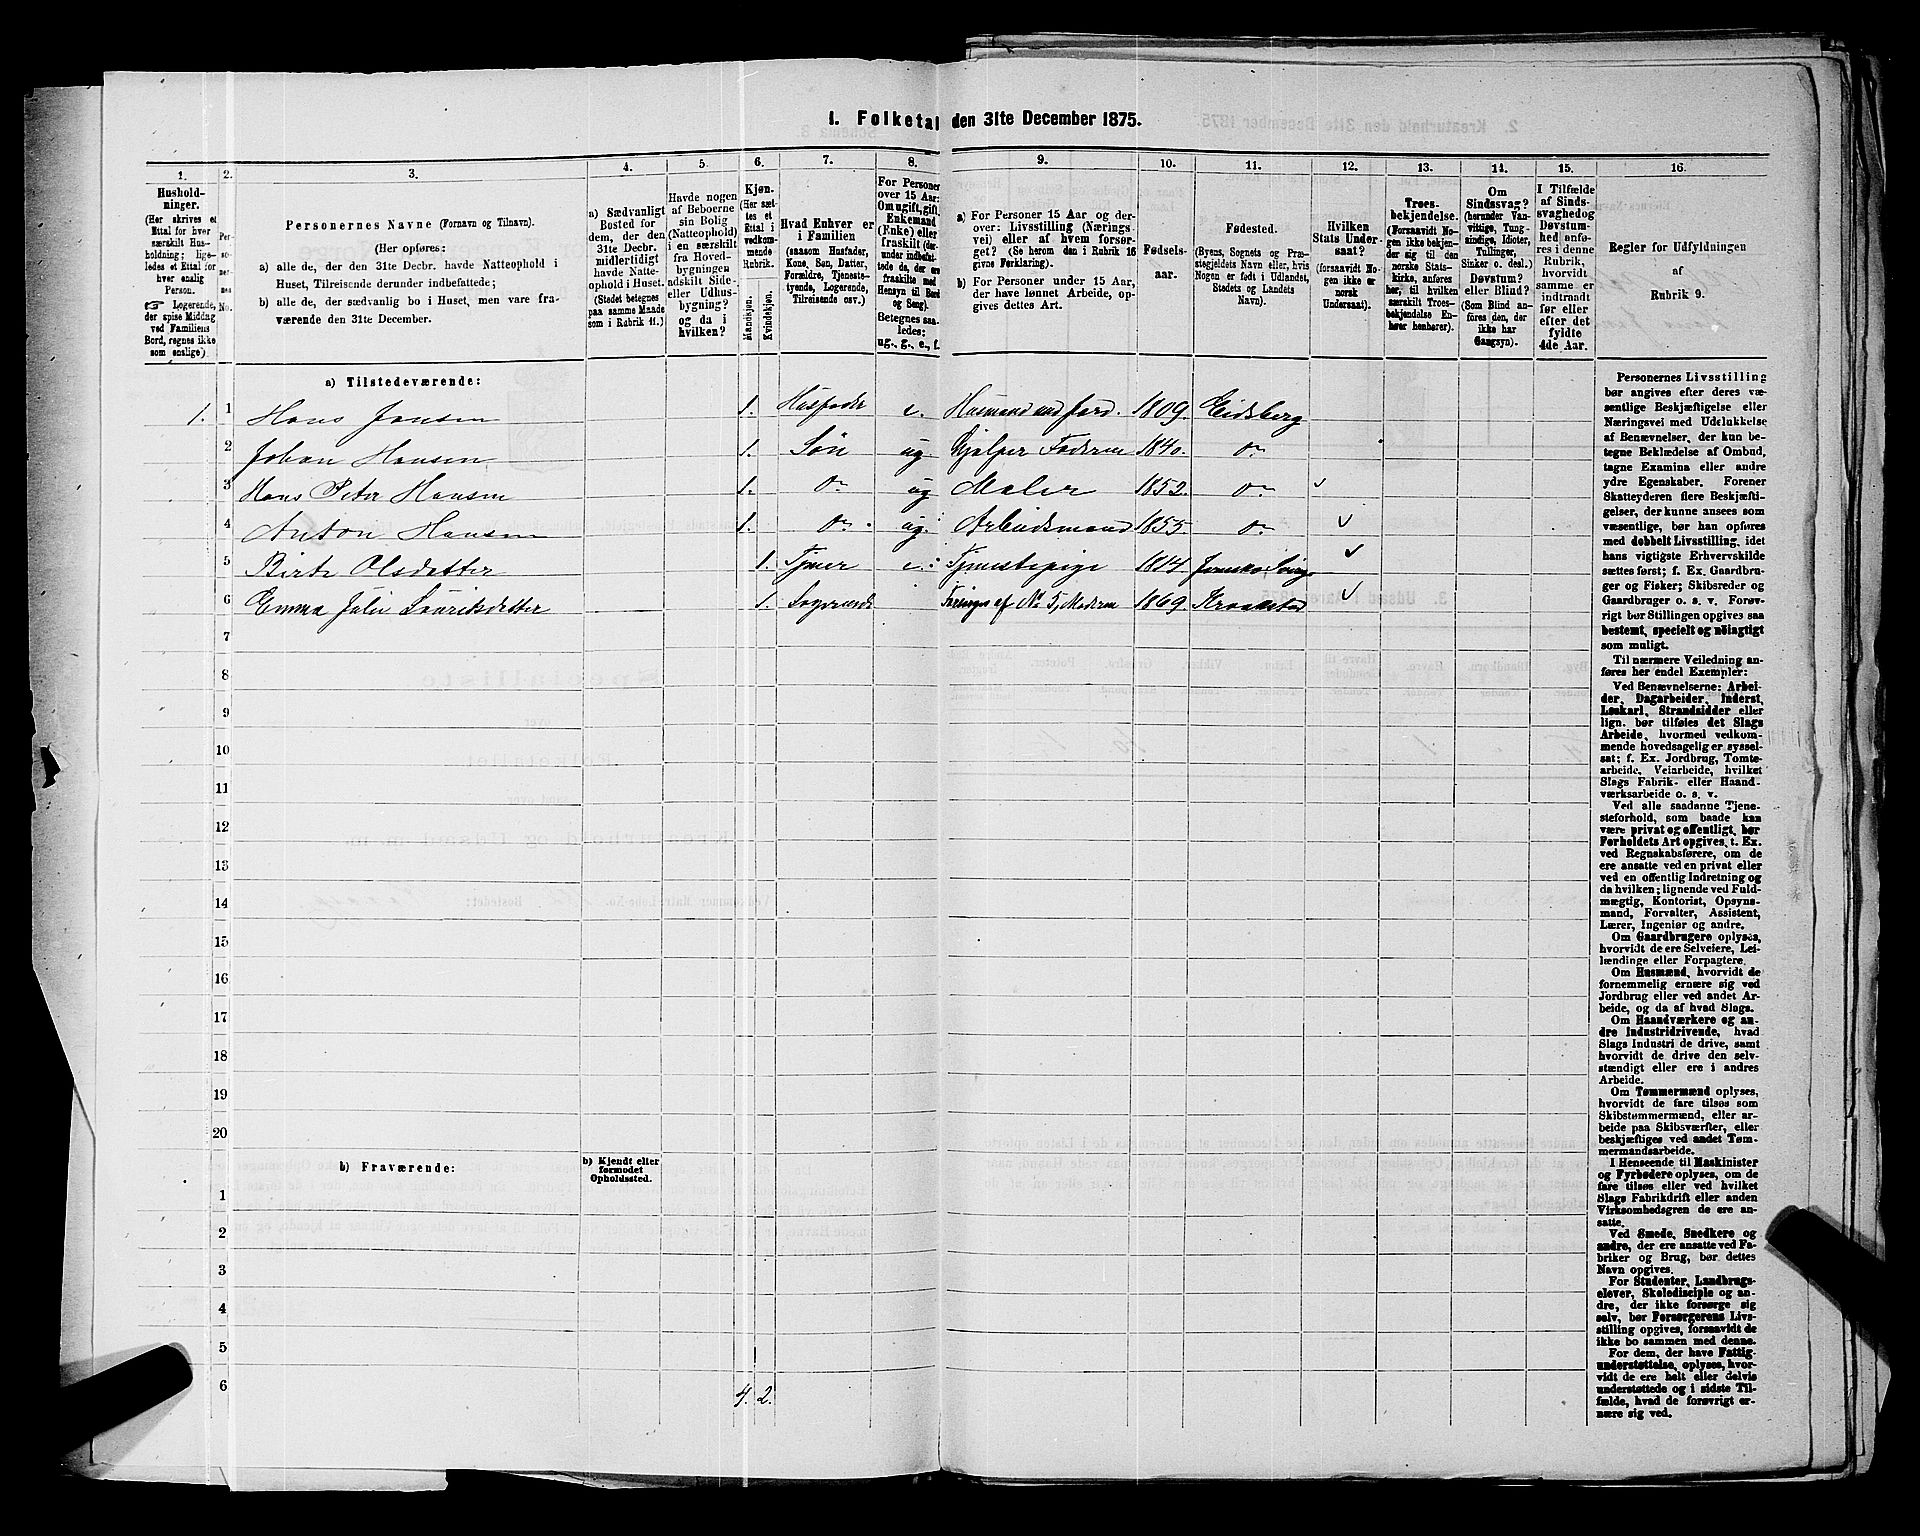 1. Folketal den 31te December 1875.
1.
2.
3.
4.
5.
6.
7.
8.
9.
10.
11.
12.
13.
14.
15.
16.
Hushold-
ninger.
(Her skrives et
Ettal for hver
særskilt Hus-
holdning; lige-
ledes et Ettal for
hver enslig
Person.
☞ Logerende,
der spise Middag
ved Familiens
Bord, regnes ikke
som enslige)
Per-
so-
ner-
nes
No.
Personernes Navne (Fornavn og Tilnavn).
(Her opføres:
a) alle de, der den 31te Decbr. havde Natteophold i
Huset, Tilreisende derunder indbefattede;
b) alle de, der sædvanlig bo i Huset, men vare fra-
værende den 31te December.
a) Sædvanligt
Bosted for
dem, der den
31te Decbr.
midlertidigt
havde Natte-
ophold i Huset.
(Stedet betegnes
paa samme Maade
som i Rubrik 11.)
Havde nogen
af Beboerne
sin Bolig
(Natteophold)
i en særskilt
fra Hoved-
bygningen
adskilt Side-
eller Udhus-
bygning?
og da i
hvilken?
Kjøn.
(Her sæt-
tes et
Ettal i
vedkom-
mende
Rubrik.
Mandskjøn.
Kvindekjøn.
Hvad Enhver er
i Familien
(saasom Husfader,
Kone, Søn, Datter,
Forældre, Tjeneste-
tyende, Logerende,
Tilreisende osv.)
For Personer
over 15 Aar:
Om ugift, gift,
Enkemand
(Enke) eller
fraskilt (der-
under indbefat-
tede de, der ere
fraskilte med
Hensyn til Bord
og Seng).
Betegnes saa-
ledes:
ug., g., e., f.
a) For Personer 15 Aar og der-
over: Livsstilling (Nærings-
vei) eller af hvem forsør-
get? (Se herom den i Rubrik 16
givne Forklaring).
b) For Personer under 15 Aar,
der have lønnet Arbeide, op-
gives dettes Art.
Fødsels-
aar.
Fødested.
(Byens, Sognets og Præ-
stegjeldets Navn eller, hvis
Nogen er født i Udlandet,
Stedets og Landets
Navn).
Hvilken
Stats Under-
saat?
(forsaavidt No-
gen ikke er
norsk
Undersaat).
Troes-
bekjendelse.
(Forsaavidt No-
gen ikke bekjen-
der sig til den
norske Stats-
kirke, anføres
her, til hvilken
særskilt Troes-
bekjendelse En-
hver henhører).
Om
Sindssvag?
(herunder Van-
vittige, Tung-
sindige, Idioter,
Tullinger,
Sinker o. desl.)
Døvstum?
eller Blind?
(Som Blind an-
føres den, der
ikke har
Gangsyn).
I Tilfælde
af Sinds-
svaghed og
Døvstum-
hed anfø-
res i denne
Rubrik,
hvorvidt
samme er
indtraadt
før eller
efter det
fyldte
4de Aar.
Regler for Udfyldningen
af
Rubrik 9.
a) Tilstedeværende:
1. 1 Hans Jensen 1. Husfader e. Husmand med Jord. 1809. Eidsberg
2 Johan Hansen 1. Søn ug Hjælper Faderen 1840. do
3 Hans Peter Hansen 1. do ug Maler 1852. do
4 Anton Hansen 1. do ug. Arbeidsmand 1855. do
5 Birte Olsdatter 1. Tjener e. Tjenestepige 1814
6 Emma Julie 1. Logerende af No 5, Moderen 1869 Kraakstad
7
8
9
10
11
12
13
14
15
16
17
18
19
20
b) Fraværende:
b) Kjendt eller
formodet
Opholdssted.
1
2
3
4
5
6
4. 2.
Personernes Livsstilling
bør angives efter deres væ-
sentlige Beskjæftigelse eller
Næringsvei med Udelukkelse
af Benævnelser, der kun be-
tegne Beklædelse af Ombud,
tagne Examina eller andre
ydre Egenskaber. Forener
Skatteyderen flere Beskjæfti-
gelser, der kunne ansees som
væsentlige, bør han opføres
med dobbelt Livsstilling, idet
hans vigtigste Erhvervskilde
sættes først; f. Ex. Gaardbru-
ger og Fisker; Skibsreder og
Gaardbruger o. s. v. Forøv-
rigt bør Stillingen opgives saa
bestemt, specielt og nøiagtigt
som muligt.
Til nærmere Veiledning an-
føres her endel Exempler:
Ved Benævnelserne: Arbei-
der, Dagarbeider, Inderst,
Løskarl, Strandsidder eller
lign. bør tilføies det Slags
Arbeide, hvormed vedkom-
mende hovedsagelig er syssel-
sat; f. Ex. Jordbrug, Tomte-
arbeide, Veiarbeide, hvilket
Slags Fabrik- eller Haand-
værksarbeide o. s. v.
Ved alle saadanne Tjene-
steforhold, som baade kan
være privat og offentligt, bør
Forholdets Art opgives, t. Ex.
ved Regnskabsførere, om de
ere ansatte ved en privat eller
ved en offentlig Indretning og
da hvilken; lignende ved Fuld-
mægtig, Kontorist, Opsyns-
mand, Forvalter, Assistent,
Lærer, Ingeniør og andre.
Om Gaardbrugere oplyses,
hvorvidt de ere Selveiere, Lei-
lændinge eller Forpagtere.
Om Husmænd, hvorvidt de
fornemmelig ernære sig ved
Jordbrug eller ved andet Ar-
beide, og da af hvad Slags.
Om Haandværkere og an-
dre Industridrivende, hvad
Slags Industri de drive, samt
hvorvidt de drive den selv-
stændigt eller ere i andres
Arbeide.
Om Tømmermænd oplyses,
hvorvidt de fare tilsøs som
Skibstømmermænd, eller ar-
beide paa Skibsværfter, eller
beskjæftiges ved andet Tøm-
mermandsarbeide.
I Henseende til Maskinister
og Fyrbødere oplyses, om de
fare tilsøs eller ved hvilket
Slags Fabrikdrift eller anden
Virksomhedsgren de ere an-
satte.
Ved Smede, Snedkere og
andre, der ere ansatte ved Fa-
briker og Brug, bør dettes
Navn opgives.
For Studenter, Landbrugs-
elever, Skoledisciple og an-
dre, der ikke forsørge sig
selv, bør Forsørgerens Livs-
stilling opgives, forsaavidt de
ikke bo sammen med denne.
For dem, der have Fattig-
understøttelse, oplyses, hvor-
vidt de ere helt eller delvis
understøttede og i sidste Til-
fælde, hvad de forøvrigt er-
nære sig ved.